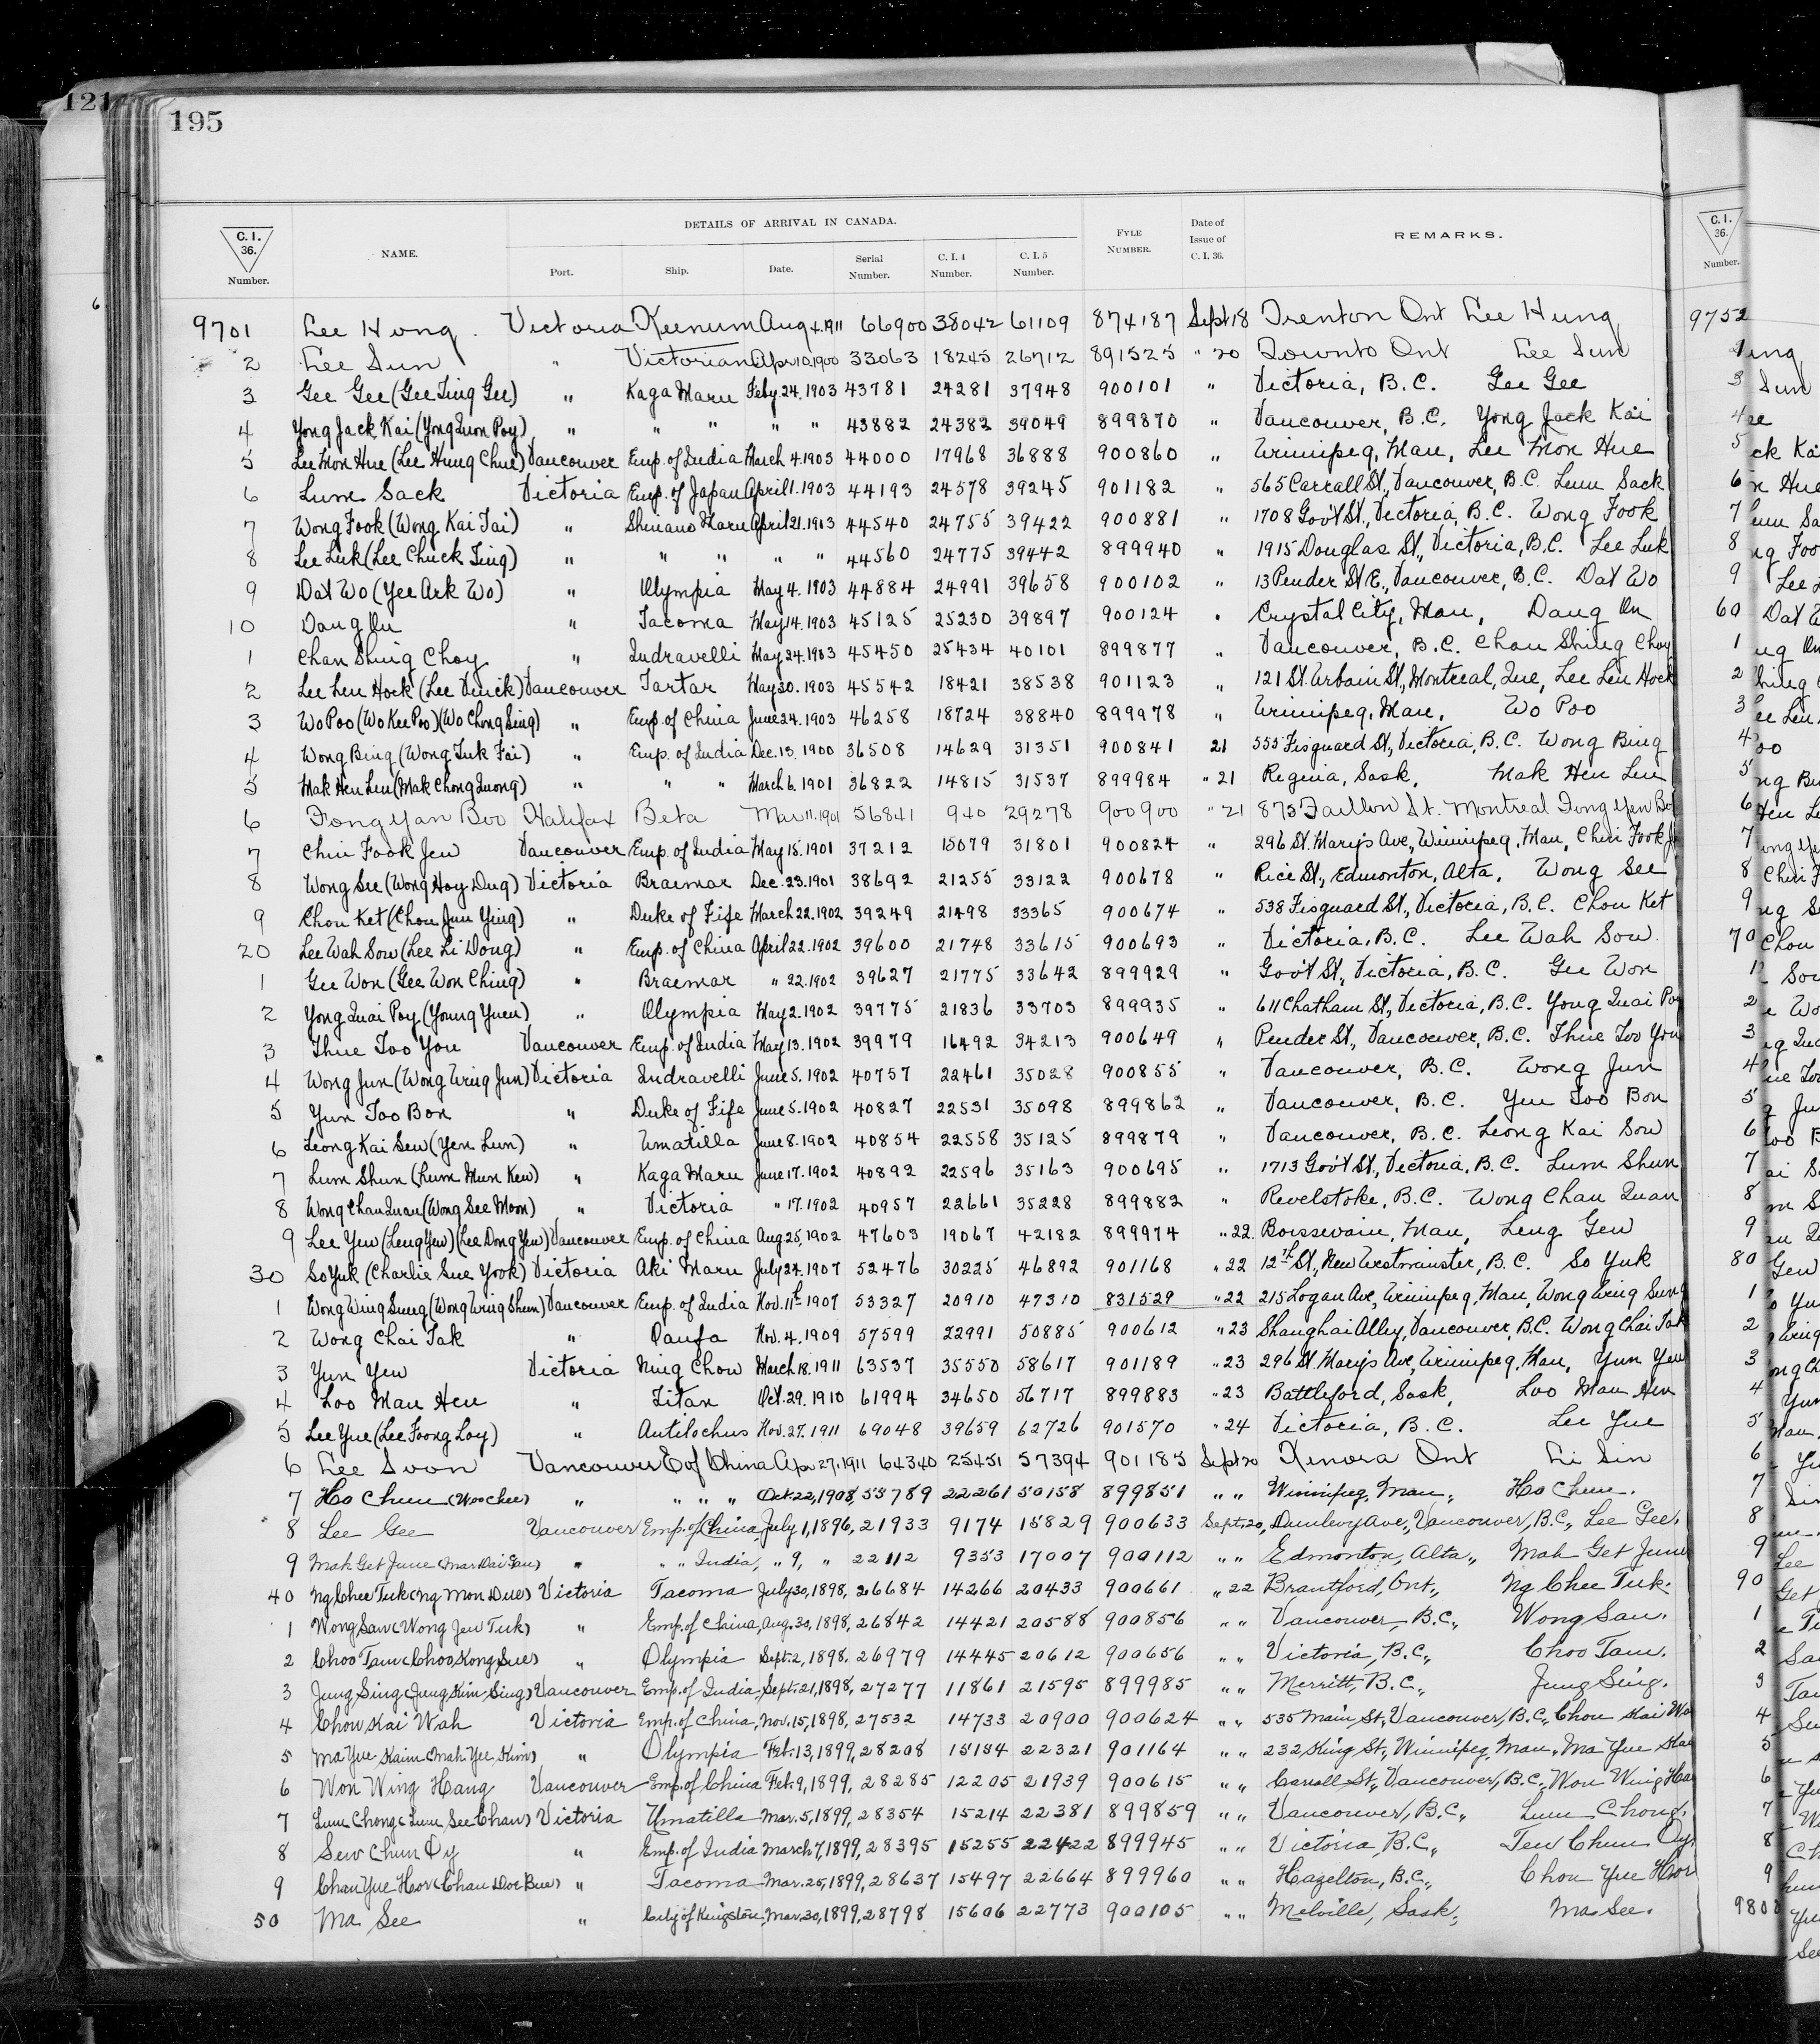 121
195
DETAILS OF ARRIVAL IN CANADA.
C. I. 36. Number. NAME. Port. Ship. Date. Serial Number. C. I. 4 Number. C. I. 5 Number. FYLE NUMBER. Date of Issue of C. I. 36. REMARKS.
C. I. 36. Number.
6
9701 Lee Hong. Victoria Keenum Aug 4.1911 66900 38042 61109 874187 Sept 18 Trenton Ont Lee Hung
2 Lee Sun " Victorian Apr 10,1900 33063 18245 26712 891525 " 20 Toronto Ont Lee Sun
3 Gee Gee (Gee Ting Gee) " Kaga Maru Feby. 24. 1903 43781 24281 37948 900101 " Victoria, B.C. Gee Gee
4 Yong Jack Kai (Yong Quon Poy) " " " " " 43882 24382 39049 899870 " Vancouver, B.C. Yong Jack Kai
5 Lee Mon Hue (Lee Hung Chue) Vancouver Emp. of India March 4.1903 44000 17968 36888 900860 " Winnipeg, Man, Lee Mon Hue
6 Lum Sack Victoria Emp. of Japan April 1. 1903 44193 24578 39245 901182 " 565 Carrall St., Vancouver, B.C. Lum Sack
7 Wong Fook (Wong Kai Tai) " Shinano Maru April 21.1903 44540 24755 39422 900881 " 1708 Gov't St., Victoria, B.C. Wong Fook
8 Lee Luk (Lee Chuck Ting) " " " " " 44560 24775 39442 899940 " 1915 Douglas St., Victoria, B.C. Lee Luk
9 Dat Wo (Yee Ark Wo) " Olympia May 4. 1903 44884 24991 39658 900102 " 13 Pender St E., Vancouver, B.C. Dat Wo
10 Dang On " Tacoma May 14. 1903 45125 25230 39897 900124 " Crystal City, Man, Dang On
1 Chan Shing Choy " Indravelli May 24.1903 45450 25434 40101 899877 " Vancouver, B.C. Chan Shing Choy
2 Lee Len Hock (Lee Duick) Vancouver Tartar May 30. 1903 45542 18421 38538 901123 " 121 St. Urbain St., Montreal, Que, Lee Len Hock
3 Wo Poo (Wo Kee Poo) (Wo Chong Sing) " Emp. of China June 24. 1903 46258 18724 38840 899978 " Winnipeg, Man, Wo Poo
4 Wong Bing (Wong Tuk Fai) " Emp. of India Dec. 13. 1900 36508 14629 31351 900841 21 555 Fisguard St., Victoria, B.C. Wong Bing
5 Mak Hen Len (Mak Chong Luong) " " " March 6. 1901 36822 14815 31537 899984 " 21 Regina, Sask, Mak Hen Len
6 Fong Yan Boo Halifax Beta Mar 11.1901 56841 940 29278 900900 " 21 875 Faillon St. Montreal Fong Yen Bo
7 Chin Fook Jew Vancouver Emp. of India May 15. 1901 37212 15079 31801 900824 " 296 St. Mary's Ave, Winnipeg, Man, Chin Fook J
8 Wong See (Wong Hoy Dug) Victoria Braemar Dec. 23.1901 38692 21255 33122 900678 " Rice St., Edmonton, Alta. Wong See
9 Chou Ket (Chou Jun Ying) " Duke of Fife March 22.1902 39249 21498 33365 900674 " 538 Fisguard St., Victoria, B.C. Chou Ket
20 Lee Wah Sow (Lee Li Dong) " Emp. of China April 22. 1902 39600 21748 33615 900693 " Victoria, B.C. Lee Wah Sow.
1 Gee Won (Gee Won Ching) " Braemar " 22.1902 39627 21775 33642 899929 " Gov't St., Victoria, B.C. Gee Won
2 Yong Quai Poy (Young Yuen) " Olympia May 2.1902 39775 21836 33703 899935 " 611 Chatham St., Victoria, B.C. Yong Quai Poy
3 Thue Too You Vancouver Emp. of India May 13. 1902 39979 16492 34213 900649 " Pender St., Vancouver, B.C. Thue Too You
4 Wong Jun (Wong Wing Jun) Victoria Indravelli June 5. 1902 40757 22461 35028 900855 " Vancouver, B.C. Wong Jun
5 Yun Too Bon " Duke of Fife June 5.1902 40827 22531 35098 899862 " Vancouver, B.C. Yun Too Bon
6 Leong Kai Sew (Yen Lun) " Umatilla June 8. 1902 40854 22558 35125 899879 " Vancouver, B.C. Leong Kai Sow
7 Lum Shun (Lum Mun Kew) " Kaga Maru June 17. 1902 40892 22596 35163 900695 " 1713 Gov't St., Victoria, B.C. Lum Shun
8 Wong Chan Quan (Wong See Moon) " Victoria " 17.1902 40957 22661 35228 899882 " Revelstoke, B.C. Wong Chan Quan
9 Lee Yew (Leng Yew) (Lee Dong Yew) Vancouver Emp. of China Aug 25, 1902 47603 19067 42182 899974 " 22. Boissevain, Man, Leng Gew
30 So Yuk (Charlie Sue Yook) Victoria Aki Maru July 24. 1907 52476 30225 46892 901168 " 22 12th St., New Westminster, B.C. So Yuk
1 Wong Wing Sung (Wong Wing Shun) Vancouver Emp. of India Nov. 11th 1907 53327 20910 47310 831529 " 22 215 Logan Ave, Winnipeg, Man, Wong Wing Sung
2 Wong Chai Tak " Oanfa Nov. 4. 1909 57599 22991 50885 900612 " 23 Shanghai Alley, Vancouver, B.C. Wong Chai Tak
3 Yun Yew Victoria Ning Chow March 18. 1911 63537 35550 58617 901189 " 23 296 St. Mary's Ave, Winnipeg, Man, Yun Yew
4 Loo Man Hen " Titan Oct. 29. 1910 61994 34650 56717 899883 " 23 Battleford, Sask, Loo Man Hen
5 Lee Yue (Lee Foong Loy) " Antilochus Nov. 27. 1911 69048 39659 62726 901570 " 24 Victoria, B.C. Lee Yue
6 Lee Soon Vancouver E of China Apr 27, 1911 64340 25451 57394 901183 Sept 20 Kenora Ont Li Sin
7 Ho Chun (Woo Chee) " " " " Oct. 22, 1908, 55789 22261 50158 899851 " " Winnipeg, Man., Ho Chun.
8 Lee Gee Vancouver Emp. of China July 1, 1896, 21933 9174 15829 900633 Sept. 20, Dunlevy Ave., Vancouver, B.C., Lee Gee.
9 Mah Get June (Mar Dai San) " " " India, " 9, " 22112 9353 17007 900112 " " Edmonton, Alta., Mah Get June
40 Ng Chee Tuk (Ng Mon Due) Victoria Tacoma July 30, 1898, 26684 14266 20433 900661 " 22 Brantford, Ont., Ng Chee Tuk.
1 Wong San (Wong Jen Tuk) " Emp. of China, Aug. 30, 1898, 26842 14421 20588 900856 " " Vancouver, B.C., Wong San.
2 Choo Tam (Choo Kong Sue) " Olympia Sept. 2, 1898. 26979 14445 20612 900656 " " Victoria, B.C., Choo Tam.
3 Jung Sing (Jung Kim Sing) Vancouver Emp. of India, Sept. 21, 1898, 27277 11861 21595 899985 " " Merritt, B.C., Jung Sing.
4 Chow Kai Wah Victoria Emp. of China, Nov. 15, 1898, 27532 14733 20900 900624 " " 535 Main St., Vancouver, B.C., Chou Kai Wa
5 Ma Yue Kaim (Mah Yee Kim) " Olympia Feb. 13, 1899, 28208 15154 22321 901164 " " 232 King St., Winnipeg, Man. Ma Yue Kai
6 Won Wing Hang Vancouver Emp. of China Feb. 9, 1899, 28285 12205 21939 900615 " " Carrall St., Vancouver, B.C., Won Wing Ha
7 Lum Chong (Lum See Chan) Victoria Umatilla Mar. 5, 1899, 28354 15214 22381 899859 " " Vancouver, B.C., Lum Chong.
8 Sew Chun Oy " Emp. of India March 7, 1899, 28395 15255 22422 899945 " " Victoria B.C., Tew Chun Oy.
9 Chan Yue Hor (Chan Doe Bue) " Tacoma Mar. 25, 1899, 28637 15497 22664 899960 " " Hazelton, B.C., Chou Yue Hor
50 Ma See " City of Kingston, Mar. 30, 1899, 28798 15606 22773 900105 " " Melville, Sask., Ma See.
9752
60
70
80
90
9800